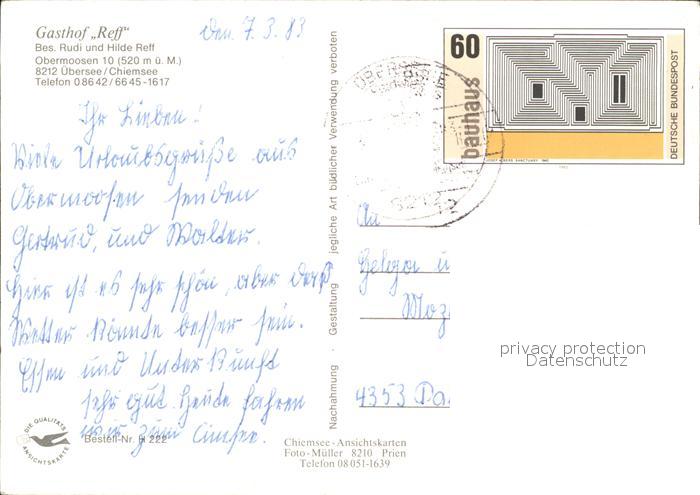 Gasthof „Reff"
Bes. Rudi und Hilde Reff
Obermoosen 10 (520 m ü. M.)
8212 Übersee/Chiemsee
Telefon 0 86 42/66 45-1617
den 7.3.83
Ihr Lieben!
Viele Urlaubsgrüße aus
Obermoosen senden
Gertrud, und Walter.
Hier ist es sehr schön, aber das
Wetter könnte besser sein.
Essen und Unterkunft
sehr gut. Heute fahren
wir zum Cimsee.
DIE QUALITÄTS
ANSICHTSKARTE
Bestell-Nr. H 222
Nachahmung · Gestaltung · jegliche Art bildlicher Verwendung verboten
Chiemsee-Ansichtskarten
Foto-Müller 8210 Prien
Telefon 08 051-1639
60
bauhaus
DEUTSCHE BUNDESPOST
JOSEF ALBERS SANCTUARY 1942
8212
An
Helga u
4353
privacy protection
Datenschutz